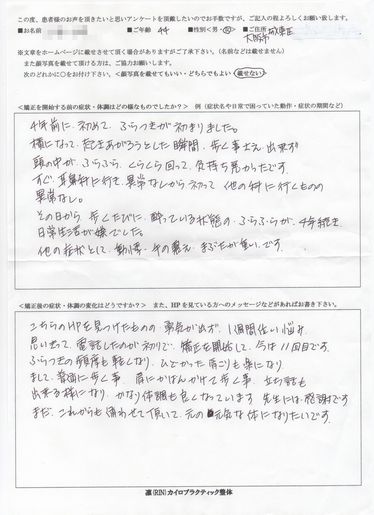 この度、患者様のお声を頂きたいと思いアンケートを頂戴したいのでお手数ですが、ご記入の程よろしくお願い致します。
■お名前 ■ご年齢 44 ■性別＜男・女＞ ■ご住所 大阪市城東区
※文章をホームページに載せさせて頂く場合がありますがご了承下さい。（名前などは載せません）
また顔写真を載せて頂ける方は、ご協力お願いします。
次のどれかに〇をお付け下さい。＜顔写真を載せてもいい・どちらでもよい・載せない＞
＜矯正を開始する前の症状・体調はどの様なものでしたか？＞ 例（症状名や日常で困っていた動作・症状の期間など）
4年前に、初めて、ふらつきが初まりました。
横になって、起きあがろうとした瞬間、歩く事さえ出来ず
頭の中が、ふらふら、くらくら回って、気持ち悪かったです。
すぐ、耳鼻科に行き、異常なしから初って 他の科に行くものの
異常なし。
その日から 歩くたびに、酔っている状態の、ふらふらが、4年続き
日常生活が嫌でした。
他の症状として、動悸・手の震え、まぶたが重いです。
＜矯正後の症状・体調の変化はどうですか？＞ また、HPを見ている方へのメッセージなどがあればお書き下さい。
こちらのHPを見つけたものの 勇気が出ず、1週間位い悩み
思い切って、電話したのが初りで、矯正を開始して、今は11回目です。
ふらつきの頻度も軽くなり、ひどかった肩こりも楽になり
まして、普通に歩く事 肩にかばんかけて歩く事、立ち話も
出来る様になり、かなり体調も良くなっています 先生には、感謝です
まだ、これからも通わせて頂いて、元の元気な体になりたいです。
凛(RIN)カイロプラクティック整体